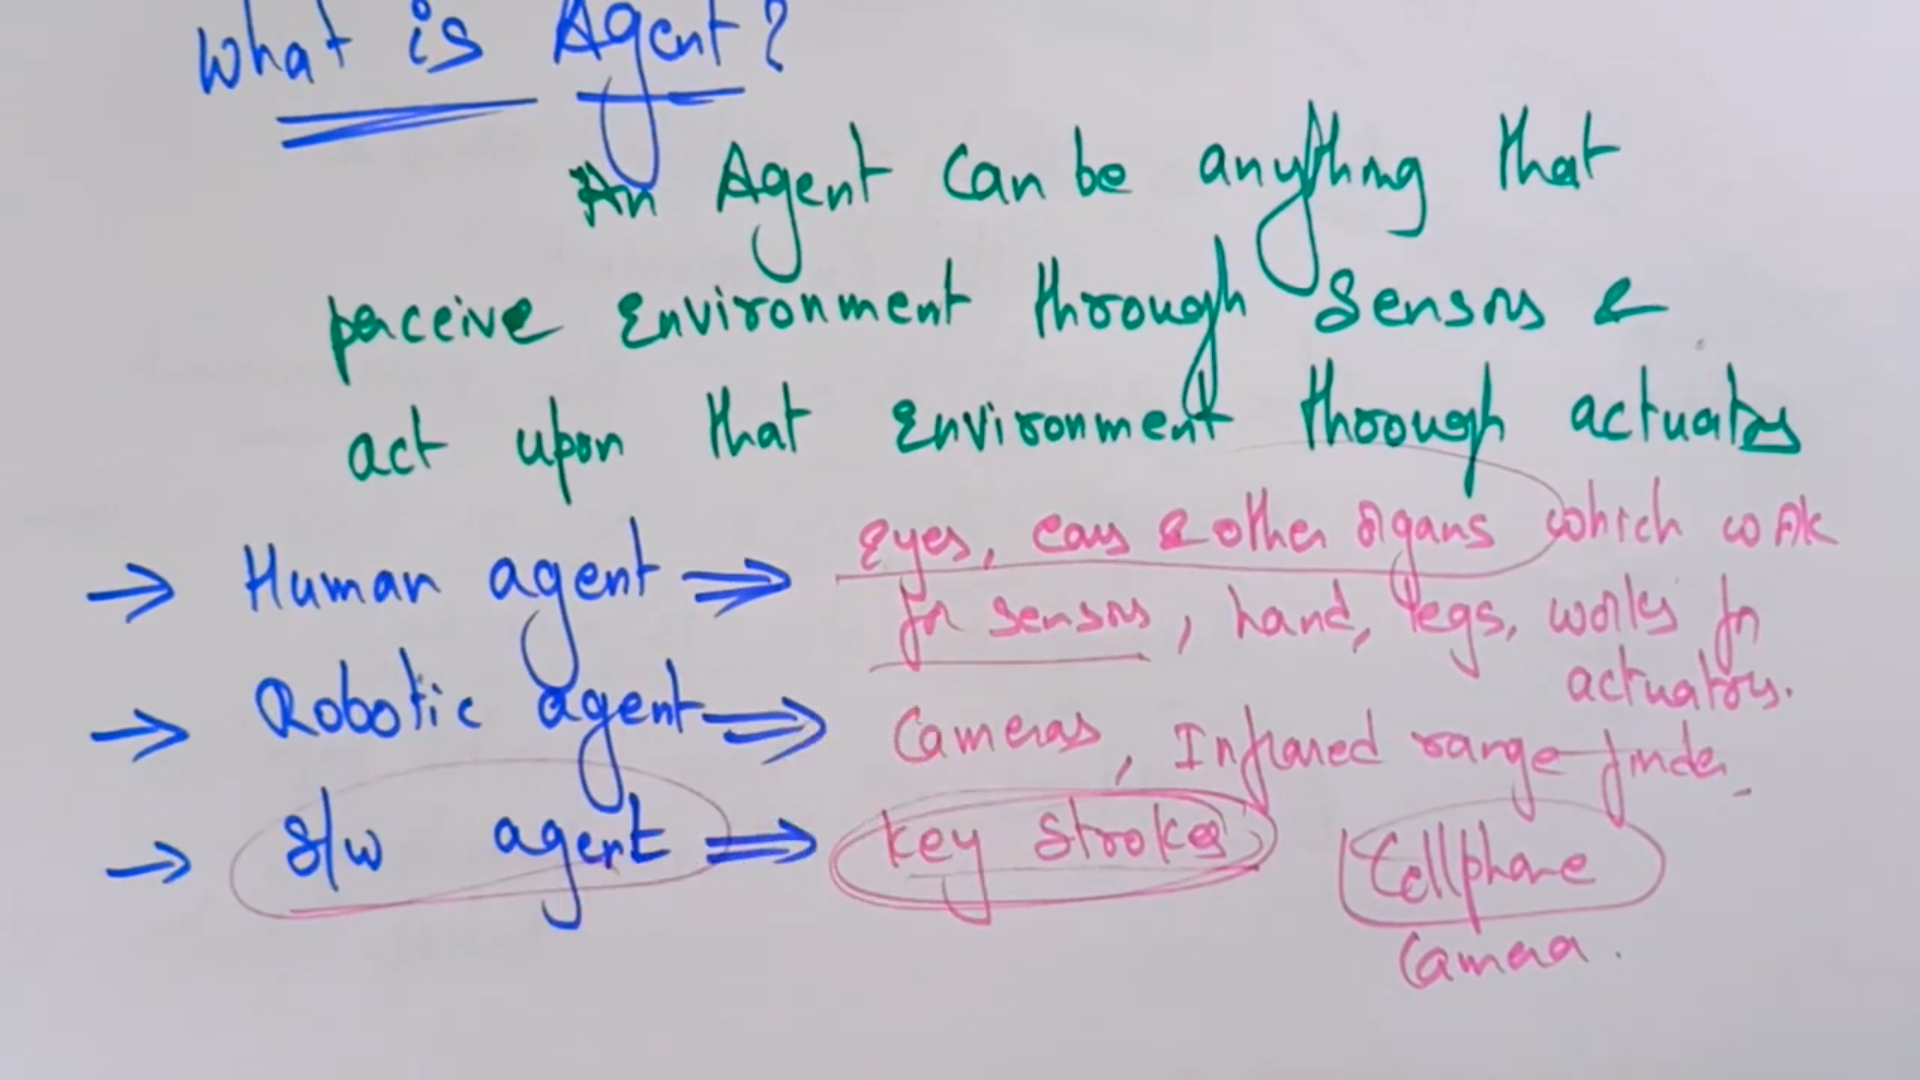 What is Agent?
An Agent can be anything that
perceive Environment through Sensors &
act upon that Environment through actuators
→ Human agent ⇒ Eyes, ears & other organs which work
for sensors, hand, legs, works for
actuators.
→ Robotic agent ⇒ Cameras, Infrared range finder.
→ S/w agent ⇒ key strokes Cellphone
Camera.